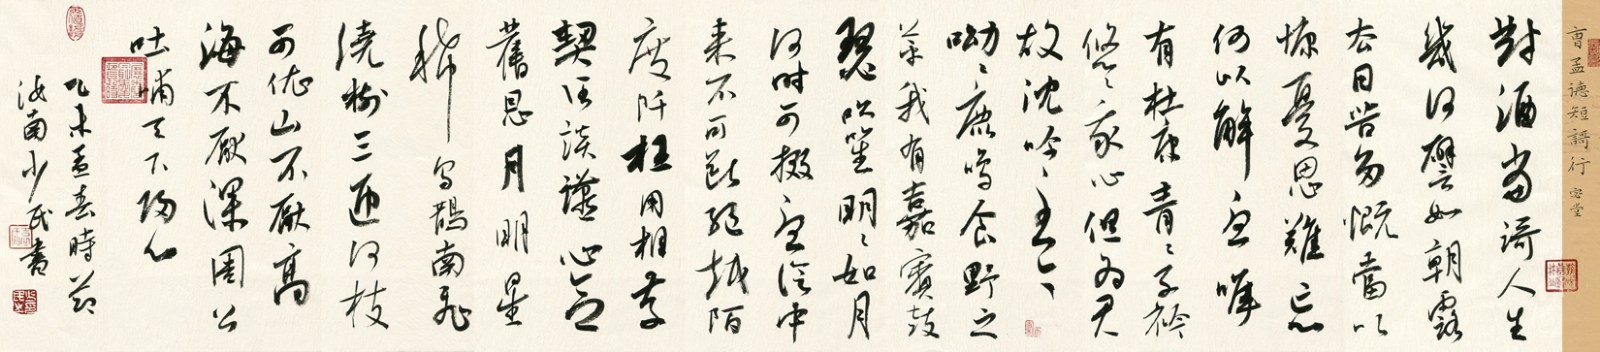 曹孟德短謌行
對酒當謌人生
幾何譬如朝露
去日苦多慨當以
慷憂思難忘
何以解憂唯
有杜康青〻子衿
悠〻我心但為君
故沈吟〻至今
呦〻鹿鳴食野之
苹我有嘉賓鼓
瑟吹笙明〻如月
何時可掇憂從中
来不可斷絕越陌
度阡枉用相存
契闊談讌心念
舊恩月明星
稀烏鵲南飛
繞樹三匝何枝
可依山不厭高
海不厭深周公
吐哺天下歸心
乙未孟春時節
汝南少民書